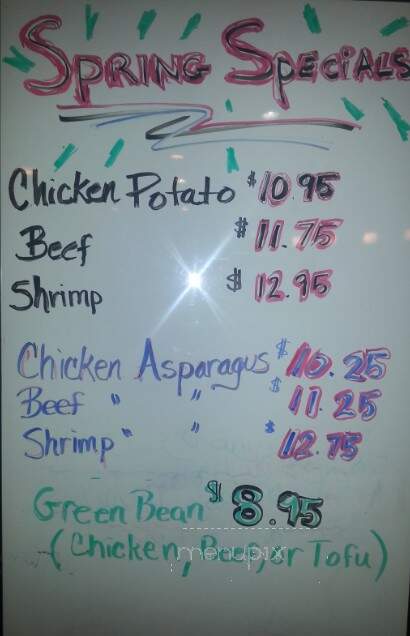 SPRING SPECIALS
Chicken Potato $10.95
Beef $11.75
Shrimp $12.95
Chicken Asparagus $10.25
Beef " " $11.25
Shrimp " " $12.75
Green Bean $8.95
(Chicken, Beef, or Tofu)
menupix